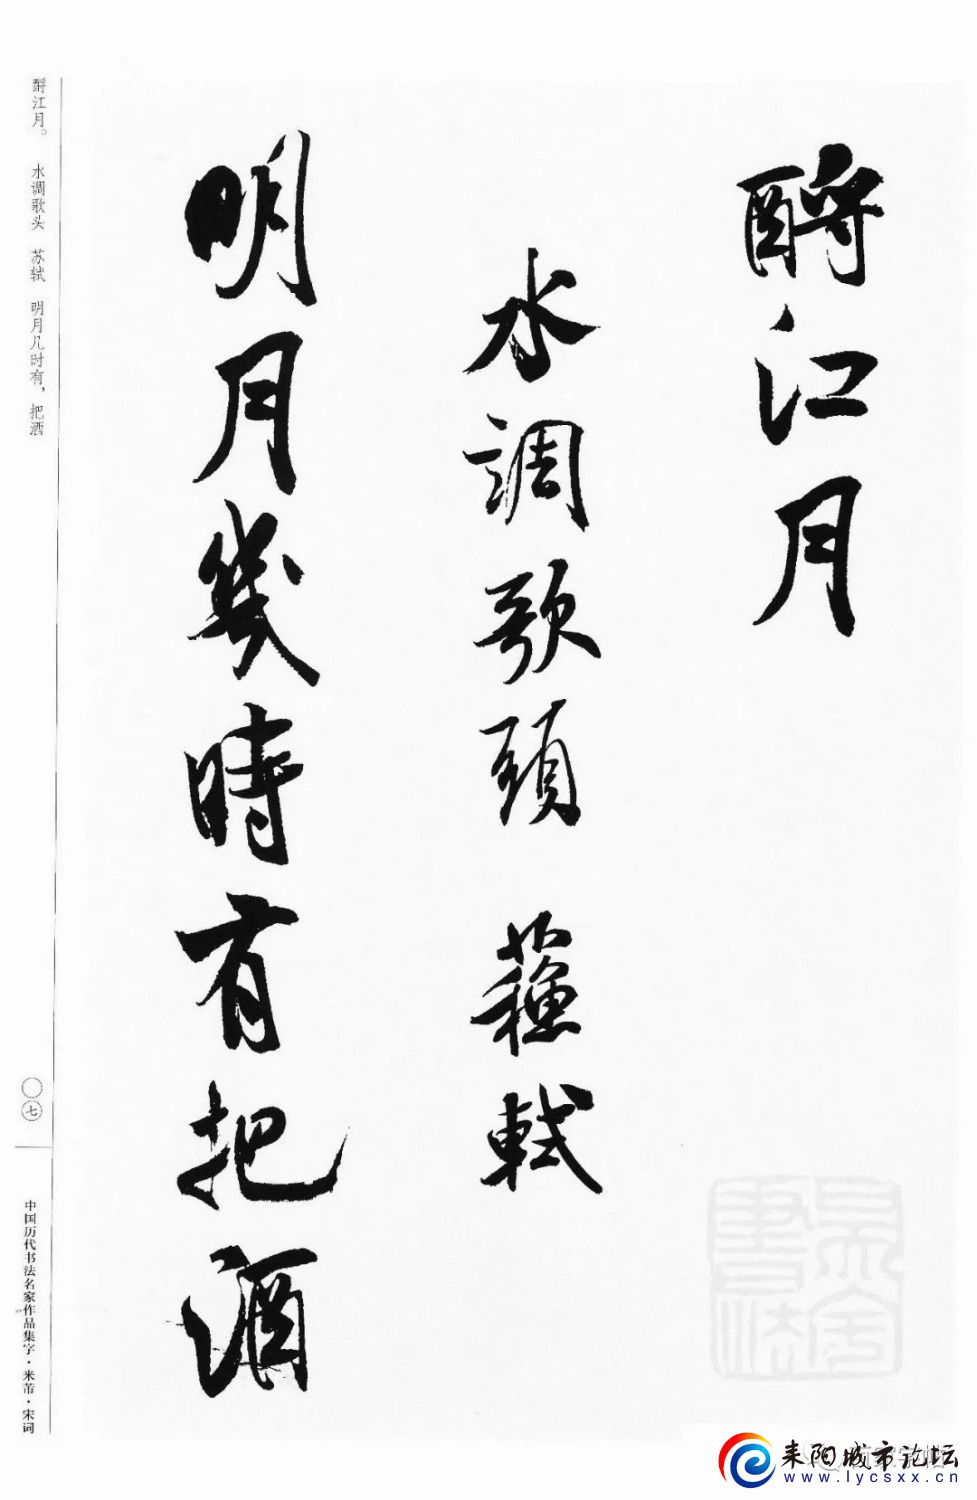 酹江月
水調歌頭 蘇軾
明月幾時有把酒
酹江月。 水调歌头 苏轼 明月几时有，把酒
〇七
中国历代书法名家作品集字·米芾·宋词
耒阳城市论坛
www.lycsxx.cn